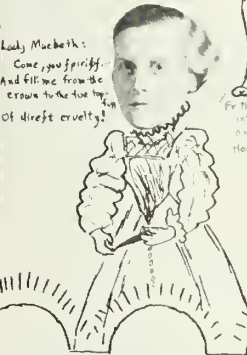 Lady Macbeth:
Come, you
And fill me from the
crown to the toe top-
full
Of direft cruelty!